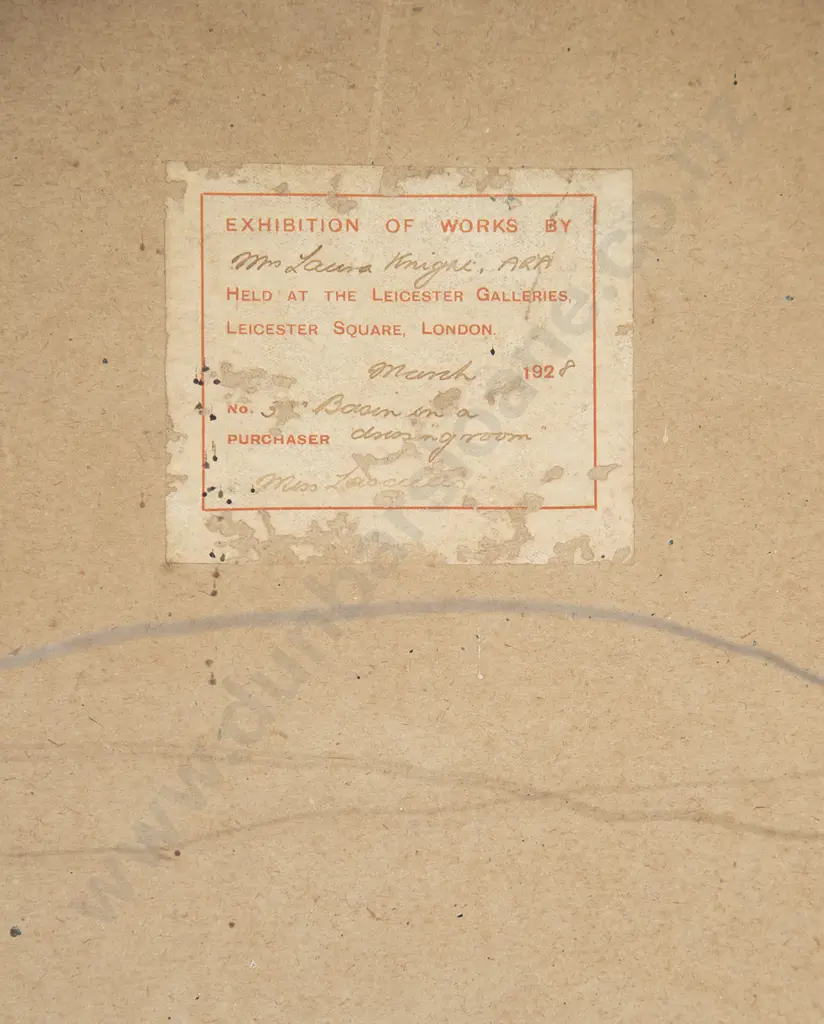 EXHIBITION OF WORKS BY
Mrs Laura Knight, ARA
HELD AT THE LEICESTER GALLERIES,
LEICESTER SQUARE, LONDON.
March 1928
No. 3 "Basin in a
PURCHASER dressing room"
Miss Lascelles
www.dunbarsloane.co.nz